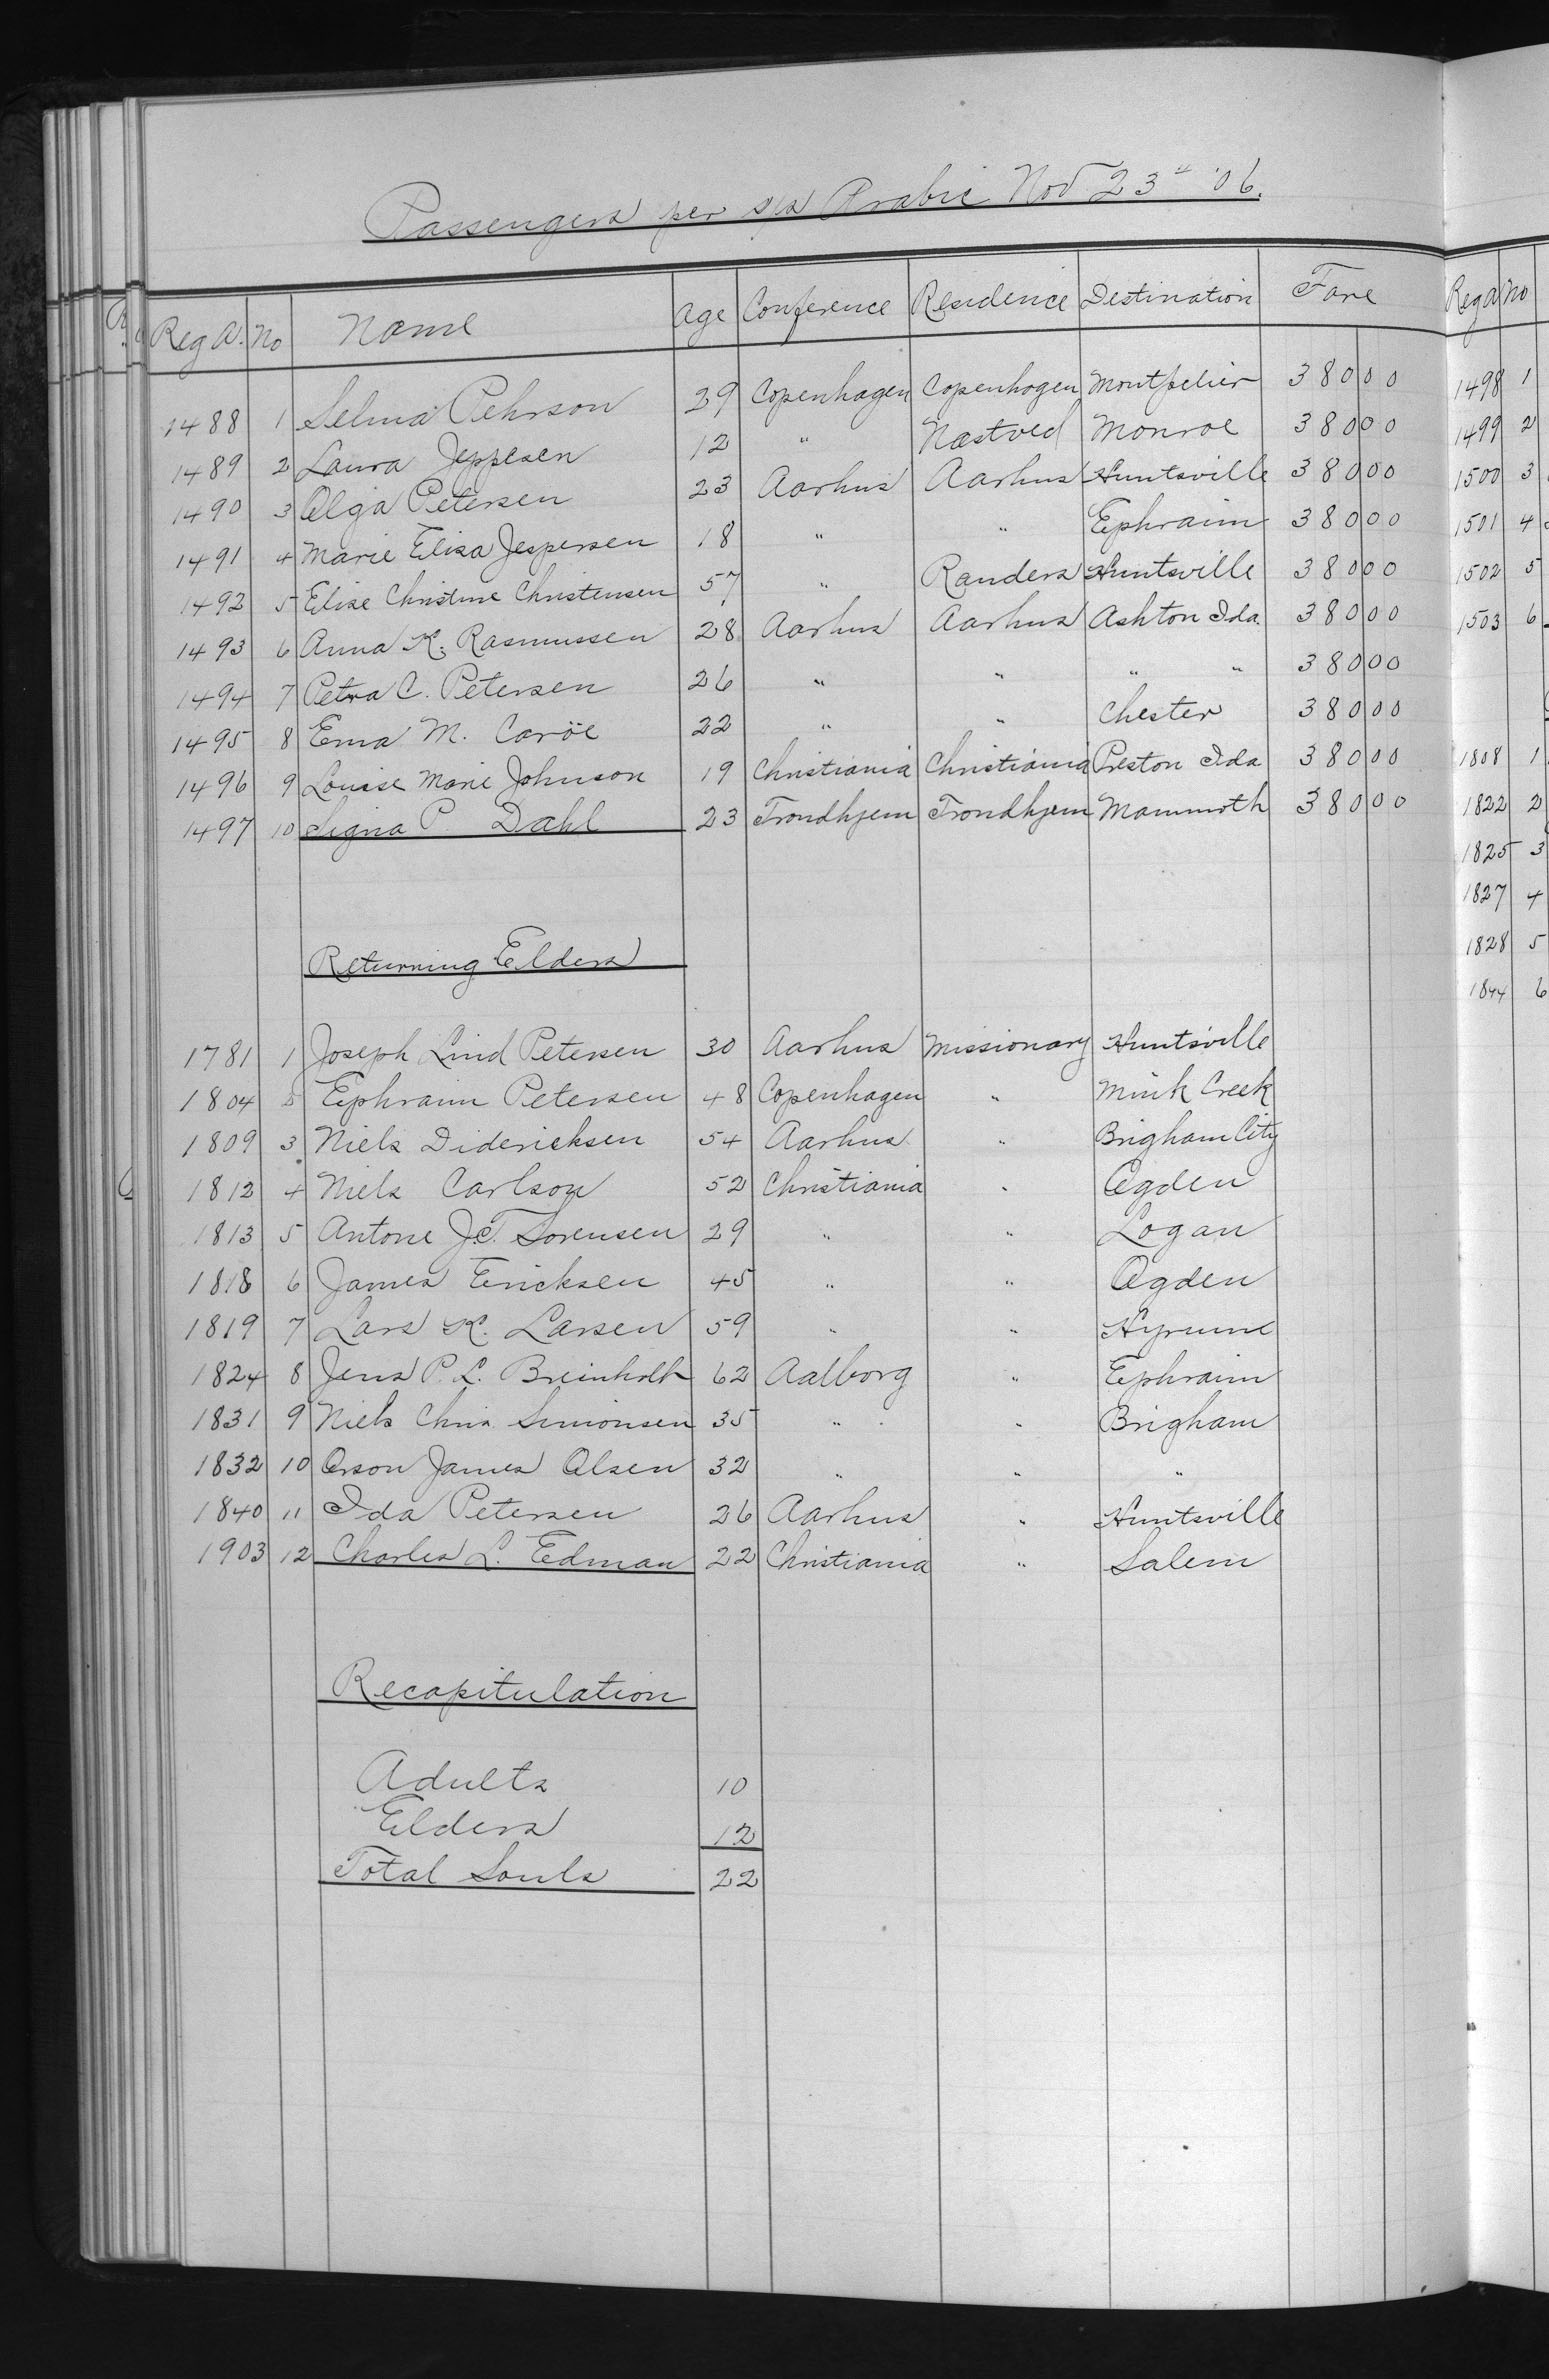 Passengers per s/s Arabic Nov 23d '06.
Reg A. No Name Age Conference Residence Destination Fare
1488 1 Selma Pehrson 29 Copenhagen Copenhagen Montpelier 380 00
1489 2 Laura Jeppesen 12 " Næstved Monroe 380 00
1490 3 Olga Petersen 23 Aarhus Aarhus Huntsville 380 00
1491 4 Marie Elisa Jespersen 18 " " Ephraim 380 00
1492 5 Elise Christine Christensen 57 " Randers Huntsville 380 00
1493 6 Anna K. Rasmussen 28 Aarhus Aarhus Ashton Ida. 380 00
1494 7 Petra C. Petersen 26 " " " " 380 00
1495 8 Erna M. Caröe 22 " " Chester 380 00
1496 9 Louise Marie Johnson 19 Christiania Christiania Preston Ida 380 00
1497 10 Signa P Dahl 23 Trondhjem Trondhjem Mammoth 380 00
Returning Elders
1781 1 Joseph Lind Petersen 30 Aarhus Missionary Huntsville
1804 2 Ephraim Petersen 48 Copenhagen " Mink Creek
1809 3 Niels Didericksen 54 Aarhus " Brigham City
1812 4 Niels Carlson 52 Christiania " Ogden
1813 5 Antone J.T. Sorensen 29 " " Logan
1818 6 James Ericksen 45 " " Ogden
1819 7 Lars K. Larsen 59 " " Hyrum
1824 8 Jens P. L. Breinholt 62 Aalborg " Ephraim
1831 9 Niels Chris Simonsen 35 " " Brigham
1832 10 Orson James Olsen 32 " " "
1840 11 Ida Petersen 26 Aarhus " Huntsville
1903 12 Charles L. Edman 22 Christiania " Salem
Recapitulation
Adults 10
Elders 12
Total Souls 22
Reg A No
1498 1
1499 2
1500 3
1501 4
1502 5
1503 6
1808 1
1822 2
1825 3
1827 4
1828 5
1844 6